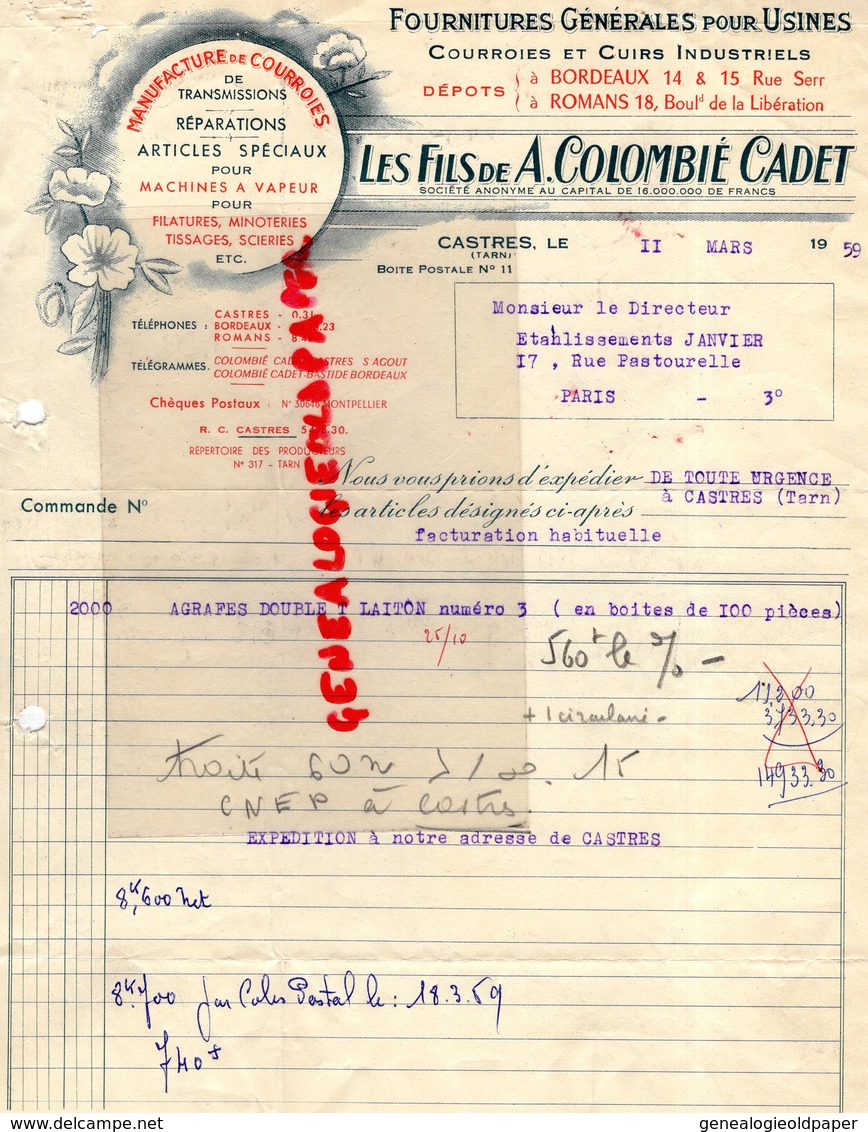 FOURNITURES GÉNÉRALES POUR USINES
COURROIES ET CUIRS INDUSTRIELS
DÉPOTS
à BORDEAUX 14 & 15 Rue Serr
à ROMANS 18, Boul^d de la Libération
MANUFACTURE DE COURROIES
DE
TRANSMISSIONS
RÉPARATIONS
ARTICLES SPÉCIAUX
POUR
MACHINES A VAPEUR
POUR
FILATURES, MINOTERIES
TISSAGES, SCIERIES
ETC.
LES FILS DE A. COLOMBIÉ CADET
SOCIÉTÉ ANONYME AU CAPITAL DE 16.000.000 DE FRANCS
CASTRES, LE II MARS 19 59
(TARN)
BOITE POSTALE N° 11
Monsieur le Directeur
Etablissements JANVIER
I7 , Rue Pastourelle
PARIS - 3°
TÉLÉPHONES :
CASTRES - 0.31
BORDEAUX - .23
ROMANS - 8.4
TÉLÉGRAMMES.
COLOMBIÉ CADET CASTRES S AGOUT
COLOMBIÉ CADET-BASTIDE BORDEAUX
Chèques Postaux : N° 30646 MONTPELLIER
R. C. CASTRES .30.
RÉPERTOIRE DES PRODUCTEURS
N° 317 - TARN
GENEALOGIENLAPAPER
Nous vous prions d'expédier DE TOUTE URGENCE
à CASTRES (Tarn)
Commande N°
les articles désignés ci-après
facturation habituelle
2000 AGRAFES DOUBLE T LAITON numéro 3 ( en boites de I00 pièces)
25/10
560 le % -
11.200
+ 1 circulaire -
3733.30
traite 60 15
14933.30
CNEP à Castres.
EXPEDITION à notre adresse de CASTRES
8k,600 net
8k.700 par Colis Postal le : 18.3.59
740
genealogieoldpaper